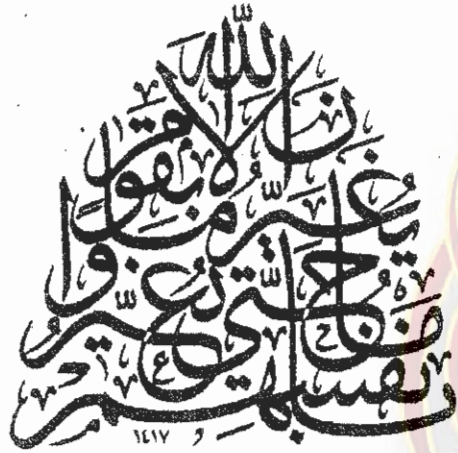 إن الله لا يغير ما بقوم
حتى يغيروا
ما بأنفسهم
١٤١٧